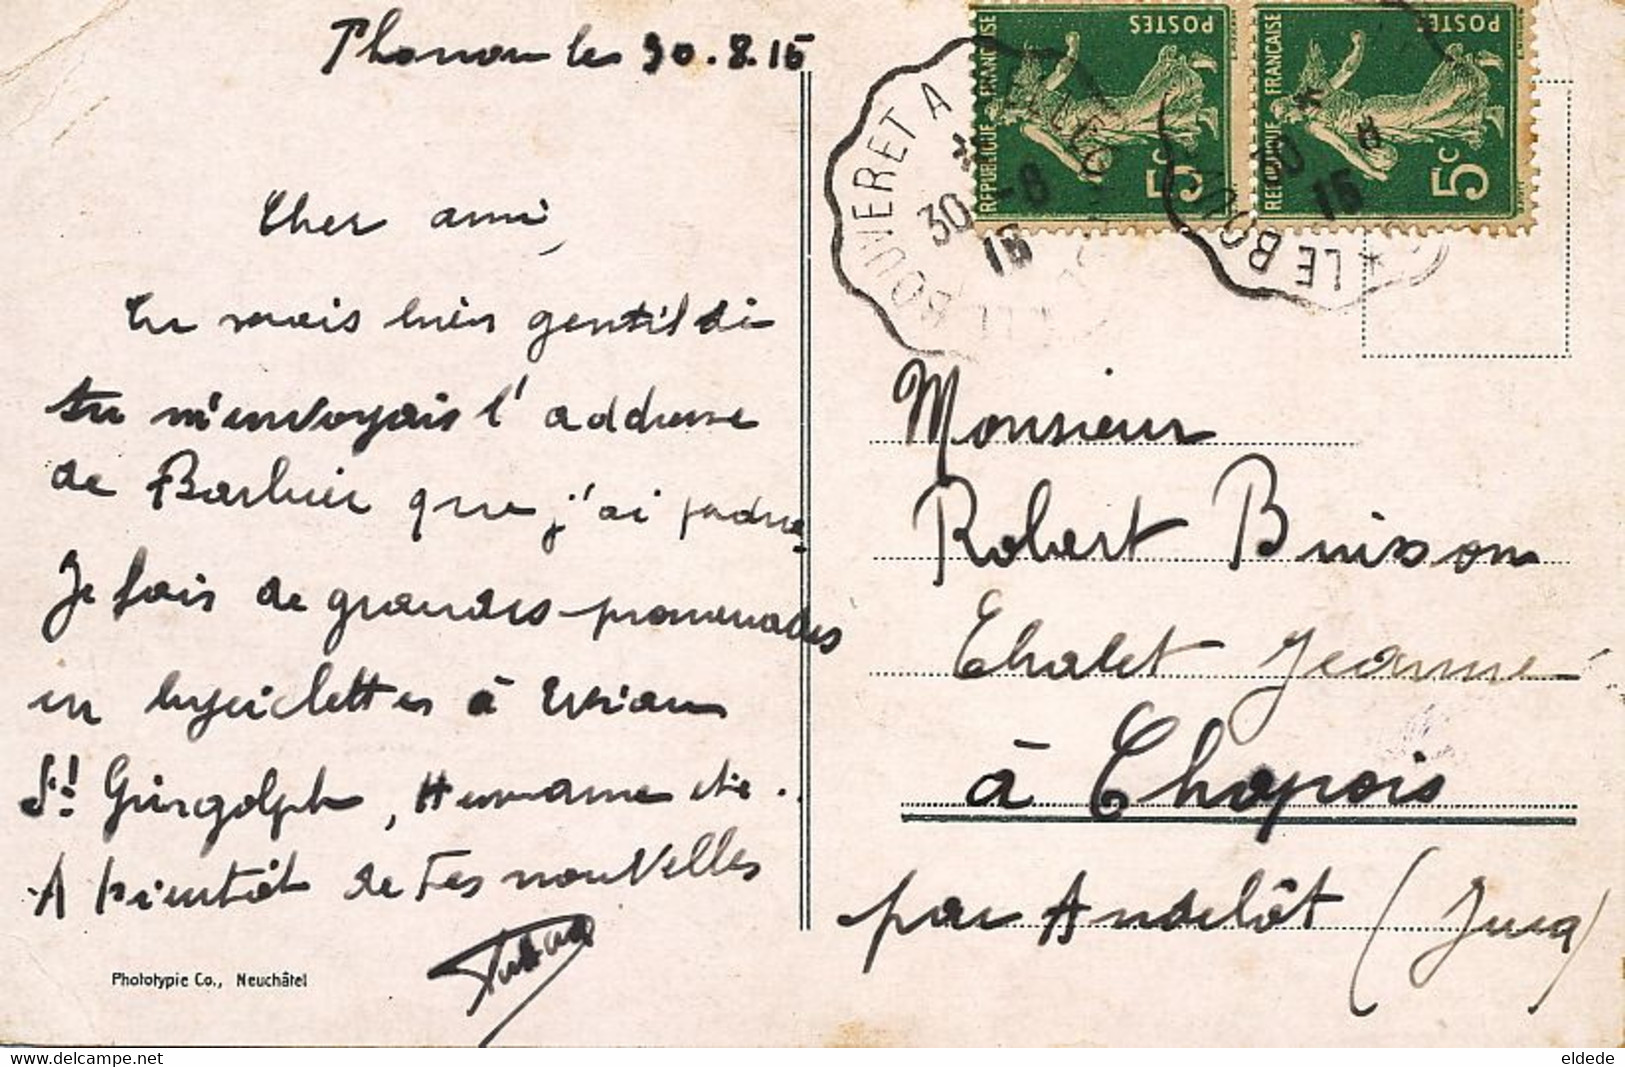 Thonon les 30.8.15
Cher ami,
Tu serais bien gentil si
tu m'envoyais l'addresse
de Barbier que j'ai perdue
Je fais de grandes promenades
en byciclettes à Evian
St Gingolph, Hermance etc.
A bientôt de tes nouvelles
Phototypie Co., Neuchâtel
POSTES
REPUBLIQUE FRANÇAISE
5c
POSTES
REPUBLIQUE FRANÇAISE
5c
BOUVERET A
30 -8
15
30 8
15
LE BOUV
Monsieur
Robert Buisson
Chalet Jeanne
à Chapois
par Andelôt (Jura)
delcampe.net
eldede